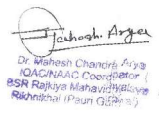 Mahesh Arya
Dr. Mahesh Chandra Arya
IQAC/NAAC Coordinator
BSR Rajkiya Mahavidyalaya
Rikhnikhal (Pauri Garhwal)